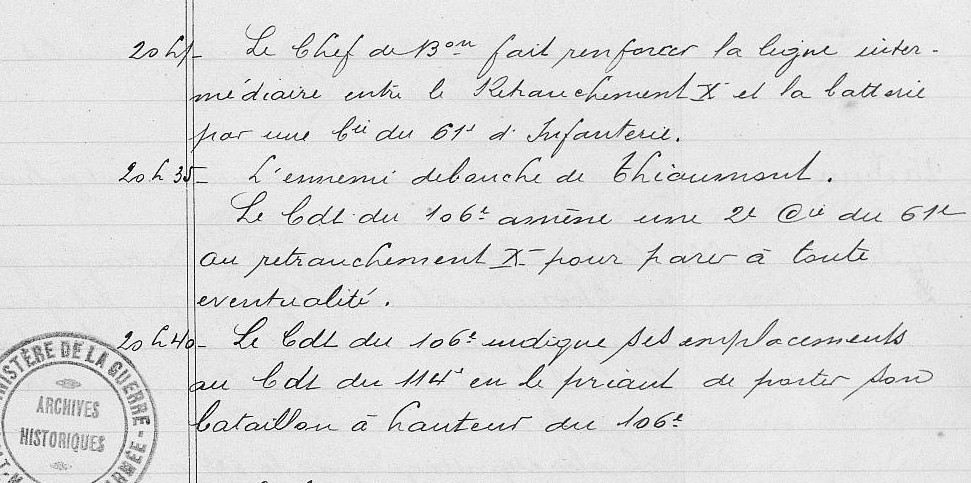 20h/- Le Chef de Bon fait renforcer la ligne inter-
médiaire entre le Retranchement X et la batterie
par une Cie du 61e d'Infanterie.
20h35- L'ennemi debouche de Thiaumont.
Le Cdt du 106e amène une 2e Cie du 61e
au retranchement X pour parer à toute
eventualité.
20h40- Le Cdt du 106e indique ses emplacements
au Cdt du 114e en le priant de porter son
bataillon à hauteur du 106e
MINISTÈRE DE LA GUERRE
ARCHIVES
HISTORIQUES